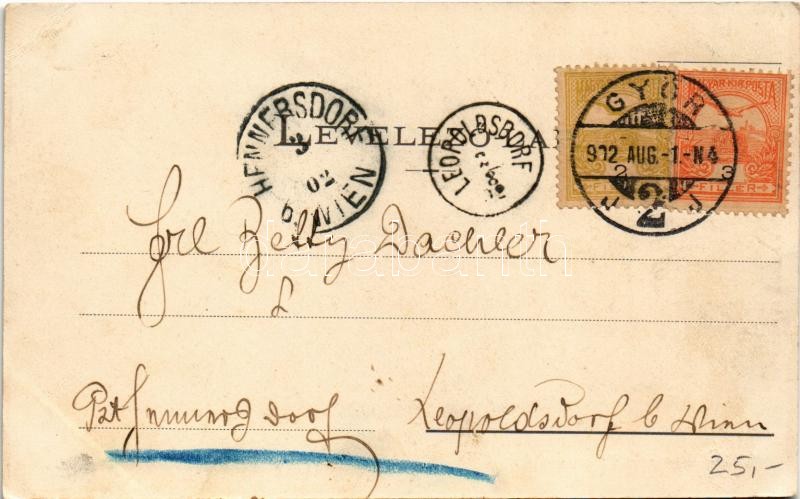 LEVELEZŐ
HENNERSDORF
3
02
b. WIEN
LEOPOLDSDORF
GYŐR
902 AUG.-1.-N4
2
3
MAGYAR KIR. POSTA
FILLÉR
Frl Betty Dachler
Post Hennersdorf
Leopoldsdorf b Wien
25,-
darabanth